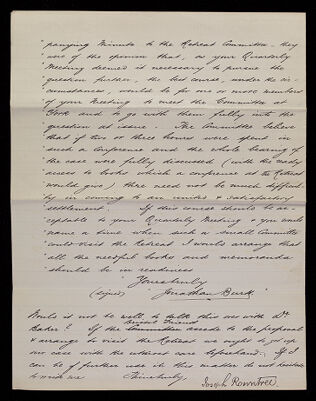 "panying Minute to the Retreat Committee - they
"were of the opinion that, as your Quarterly
"Meeting deemed it necessary to pursue the
"question further, the best course, under the cir-
"cumstances, would be for one or more members
"of your Meeting to meet the Committee at
"York and to go with them fully into the
"question at issue. The Committee believe
"that if two or three hours were spent in
"such a conference and the whole bearing of
"the case were fully discussed (with the ready
"access to books which a conference at the Retreat
"would give) there need not be much difficul-
"ty in coming to an united & satisfactory
"settlement. If this course should be ac-
"ceptable to your Quarterly Meeting & you would
"name a time when such a small Committee
"could visit the Retreat I would arrange that
"all the needful books and memoranda
"should be in readiness
"Yours truly
(signed) "Jonathan Burtt"
Would it not be well to talk this over with Dr
Baker? If the Committee accede to the proposal
& arrange to visit the Retreat we ought to get up
our case with the utmost care beforehand. If I
can be of further use in this matter do not hesitate
to write me Thine truly,
Joseph Rowntree.